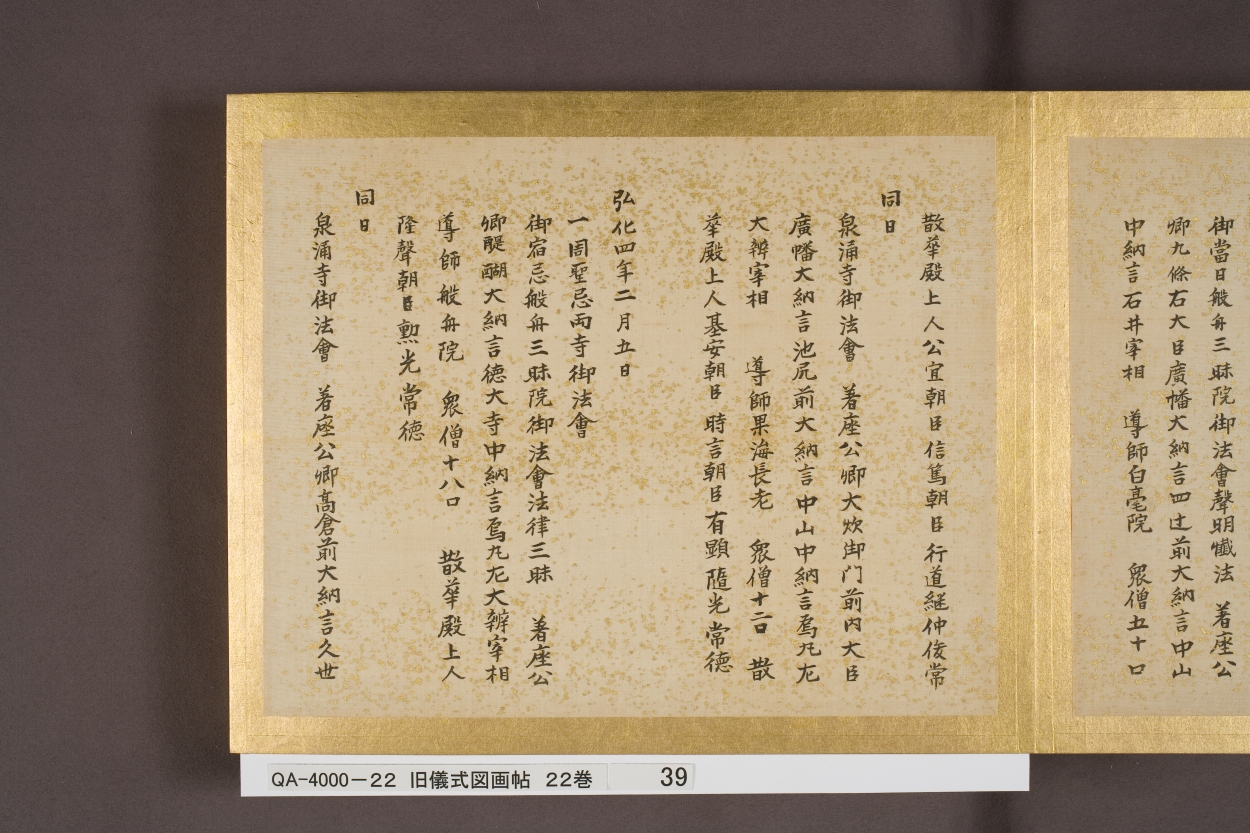 御當日般舟三昧院御法會聲明懺法　著座公
卿九條右大臣廣幡大納言四辻前大納言中山
中納言石井宰相　導師白毫院　衆僧五十口
散華殿上人公宜朝臣信篤朝臣行道継仲俊常
同日
泉涌寺御法會　著座公卿大炊御門前内大臣
廣幡大納言池尻前大納言中山中納言烏丸左
大辨宰相　導師果海長老　衆僧十二口　散
華殿上人基安朝臣時言朝臣有顕隨光常德
弘化四年二月五日
一周聖忌両寺御法會
御宿忌般舟三昧院御法會法律三昧　著座公
卿醍醐大納言德大寺中納言烏丸左大辨宰相
導師般舟院　衆僧十八口　散華殿上人
隆聲朝臣勲光常德
同日
泉涌寺御法會　著座公卿高倉前大納言久世
QA-4000-22 旧儀式図画帖 22巻 39